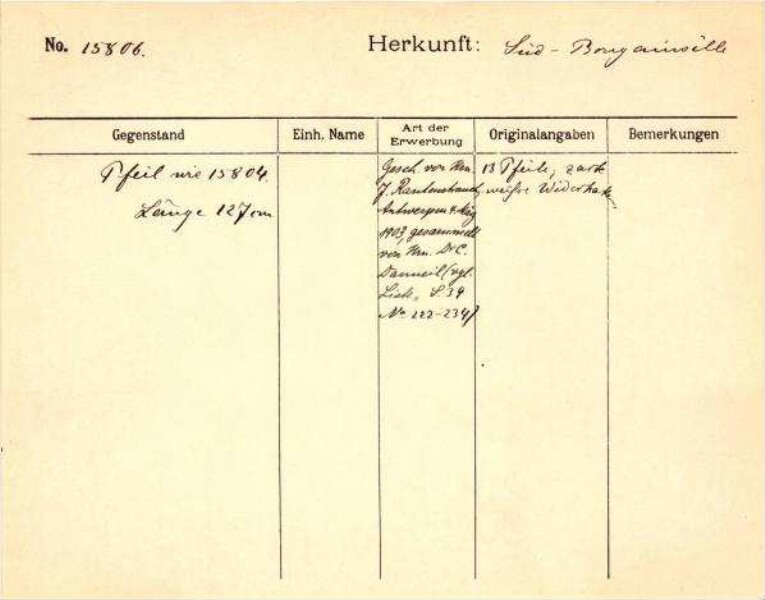 No. 15806. Herkunft: Süd - Bougainville
Gegenstand Einh. Name Art der Erwerbung Originalangaben Bemerkungen
Pfeil wie 15804.
Länge 127 cm
Gesch. von Hrn.
J. Rautenstrauch,
Antwerpen 4. Mäz
1903, gesammelt
von Hrn. Dr C.
Danneil (vgl.
Liste, S. 39
No 222-234)
13 Pfeile, zarte
weiße Widerhak